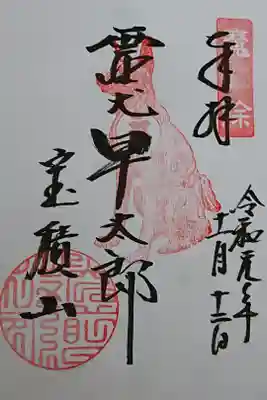 奉拝
令和元年
十一月十二日
霊犬早太郎
宝積山